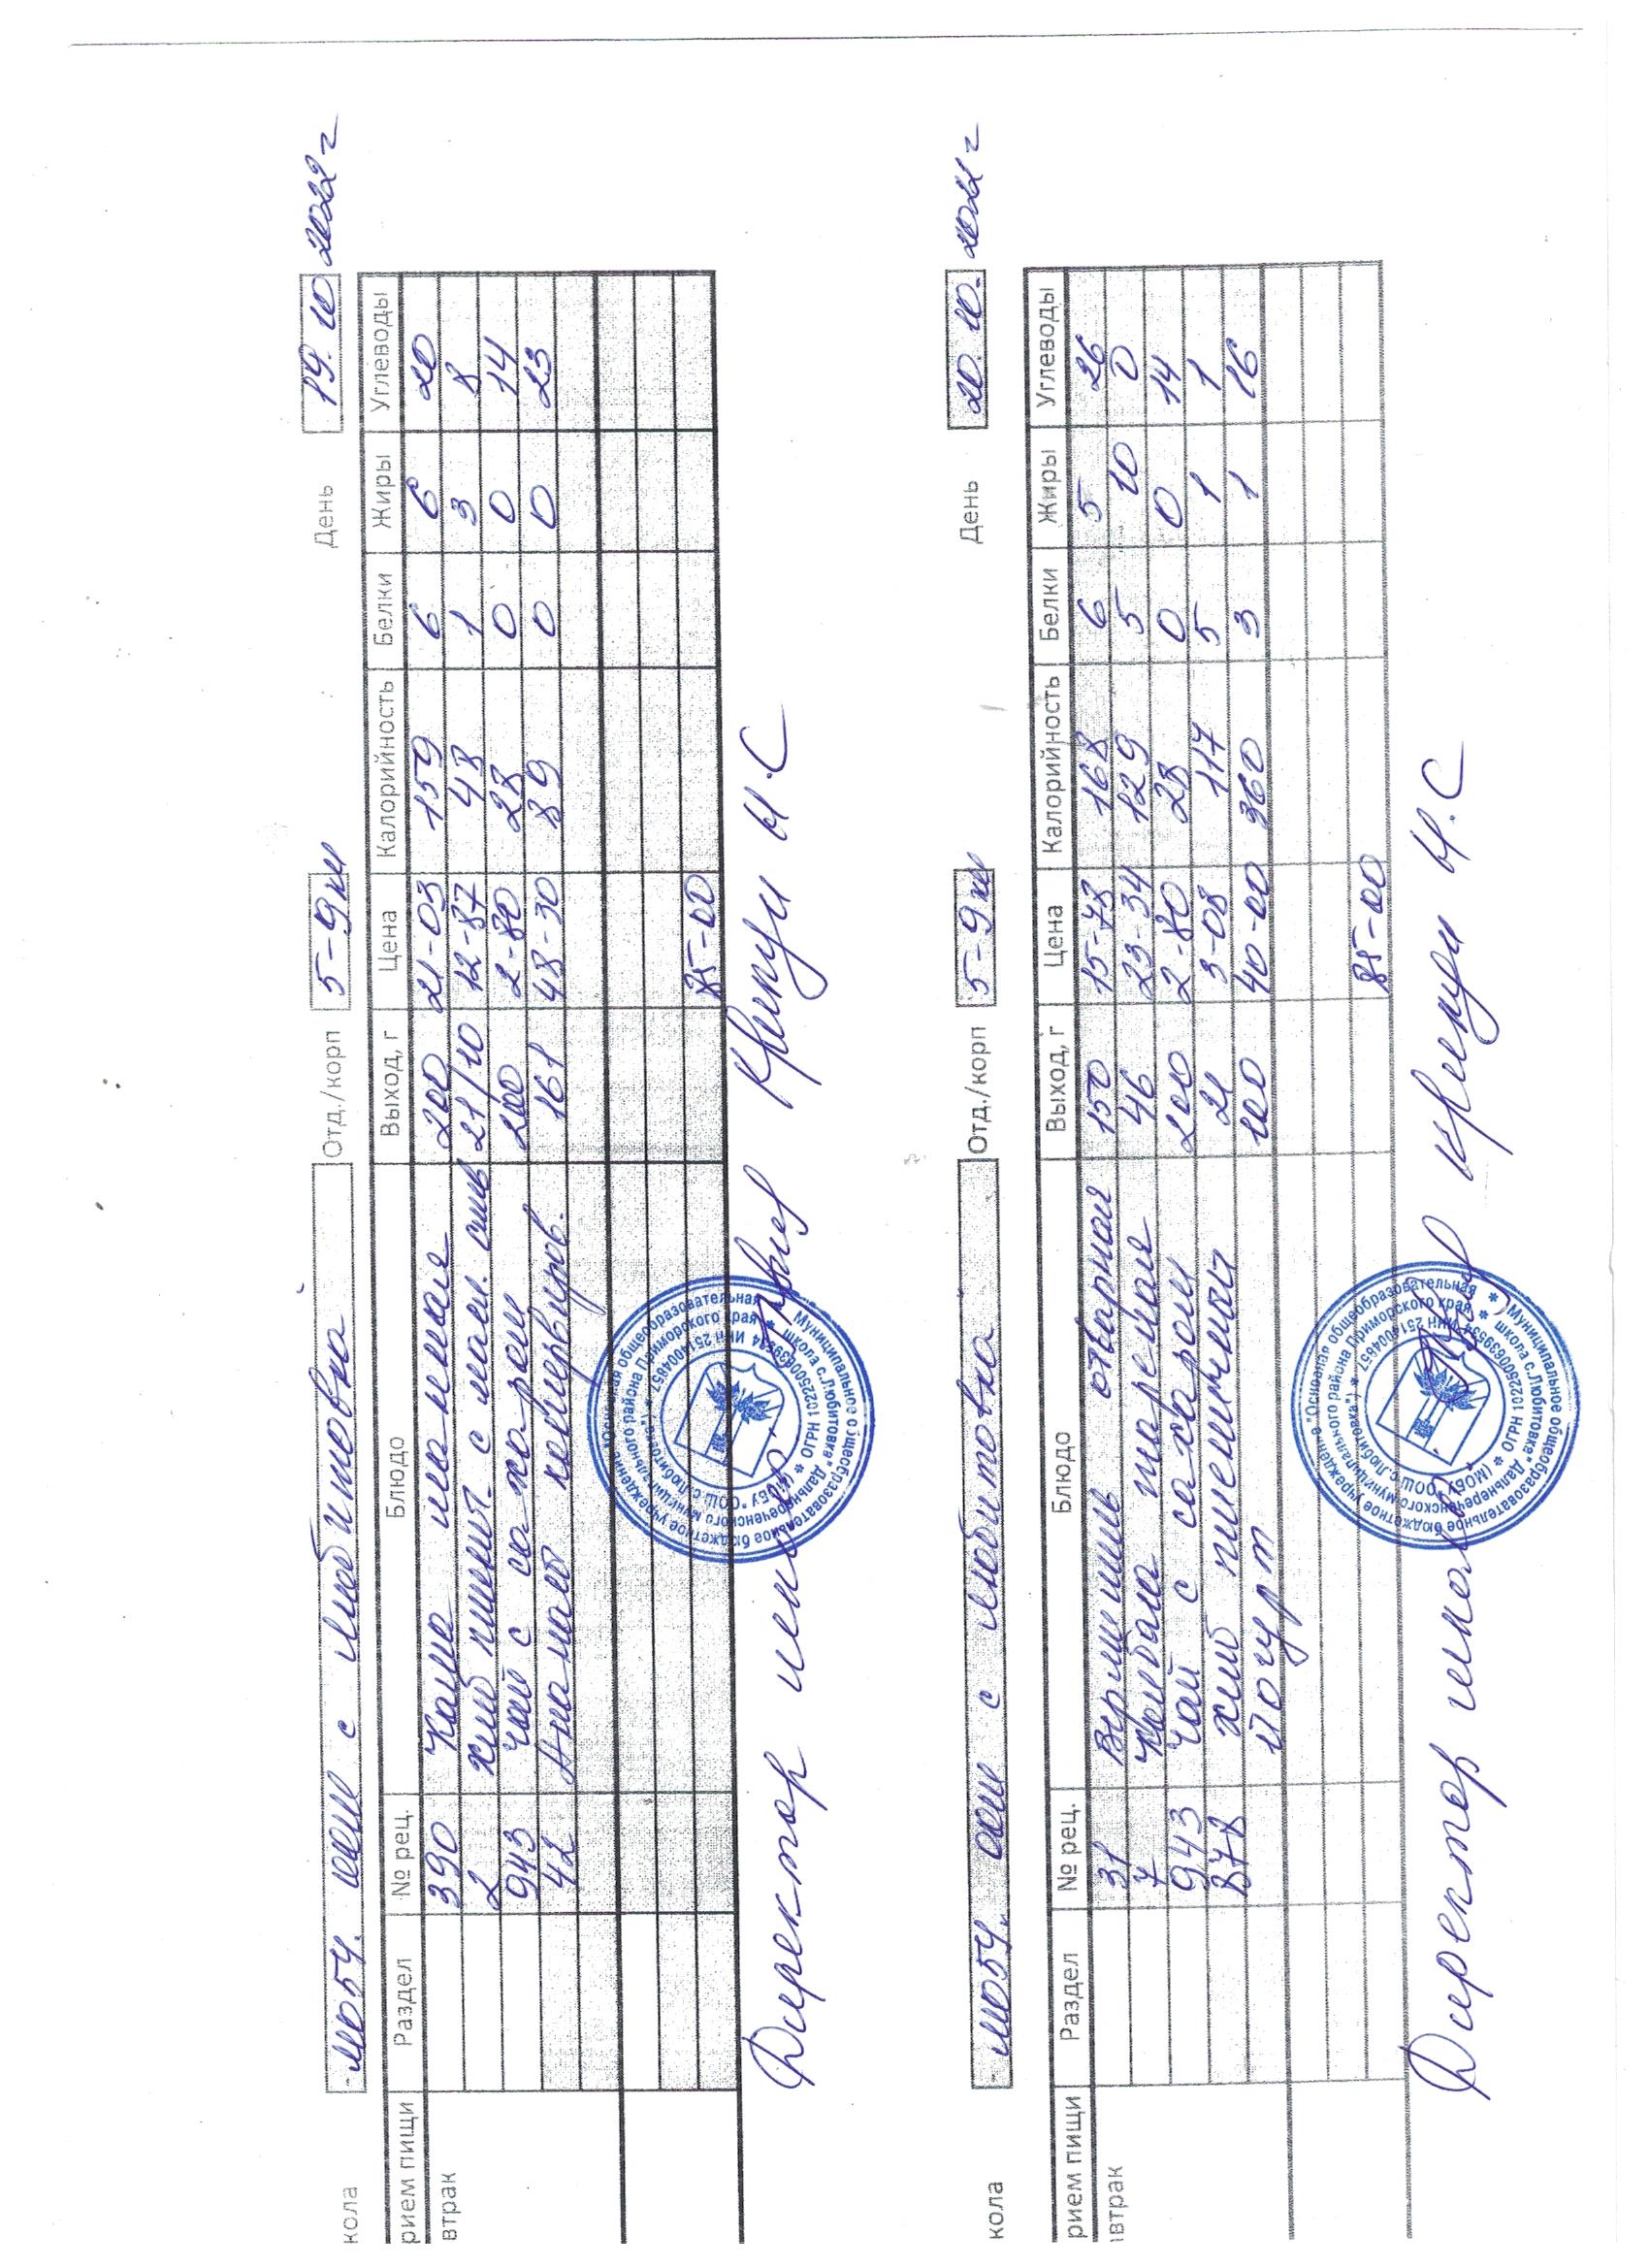 кола МОБУ. ООШ с Любитовка Отд./корп 5-9 кл День 19.10 2022 г
рием пищи Раздел № рец. Блюдо Выход, г Цена Калорийность Белки Жиры Углеводы
втрак 390 Каша манная 200 21-03 159 6 6 20
2 хлеб пшенич. с масл. слив 21/10 12-87 48 1 3 8
943 чай с сахаром 200 2-80 28 0 0 14
42 Ананас консервиров. 161 48-30 89 0 0 23
85-00
Директор школы Крицун Н.С
Муниципальное общеобразовательное бюджетное учреждение "Основная общеобразовательная
школа с.Любитовка" Дальнереченского муниципального района Приморского края
(МОБУ "ООШ с.Любитовка")
кола МОБУ. ООШ с Любитовка Отд./корп 5-9 кл День 20.10. 2022 г
рием пищи Раздел № рец. Блюдо Выход, г Цена Калорийность Белки Жиры Углеводы
автрак 31 Вермишель отварная 150 15-78 168 6 5 26
7 Колбаса вареная 46 23-34 129 5 10 0
943 Чай с сахаром 200 2-80 28 0 0 14
878 хлеб пшеничный 21 3-08 117 5 1 1
йогурт 100 40-00 360 3 1 16
85-00
Директор школы Крицун Н.С
Муниципальное общеобразовательное бюджетное учреждение "Основная общеобразовательная
школа с.Любитовка" Дальнереченского муниципального района Приморского края
(МОБУ "ООШ с.Любитовка")